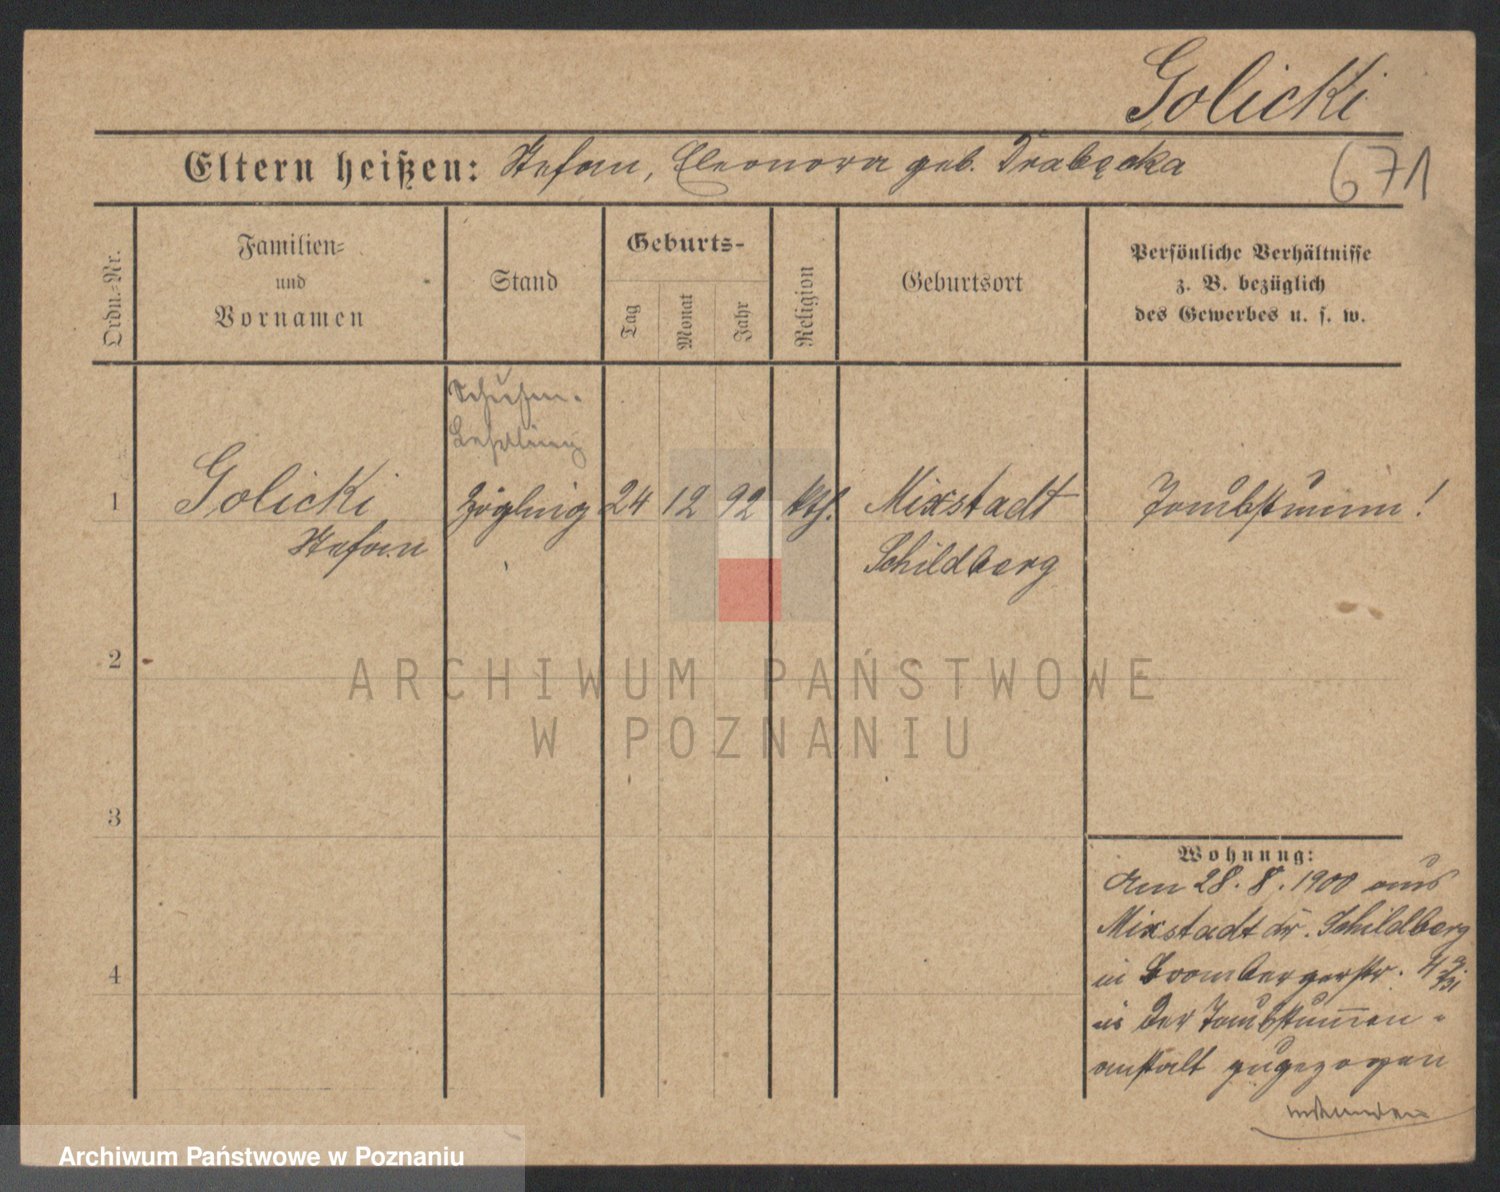 Golicki
Eltern heißen: Stefan, Eleonora geb. Drabęcka
671
Ordn.-Nr.
Familien- und Vornamen
Stand
Geburts-
Tag
Monat
Jahr
Religion
Geburtsort
Persönliche Verhältnisse
z. B. bezüglich
des Gewerbes u. s. w.
Schuhm.
Lehrling
1 Golicki Zögling 24 12 92 kth. Mixstadt Taubstumm!
Stefan Schildberg
2
3
4
Wohnung:
Am 28. 8. 1900 aus
Mixstadt Kr. Schildberg
in Brombergerstr. 4
in der Taubstummen-
anstalt zugezogen
ARCHIWUM PAŃSTWOWE
W POZNANIU
Archiwum Państwowe w Poznaniu